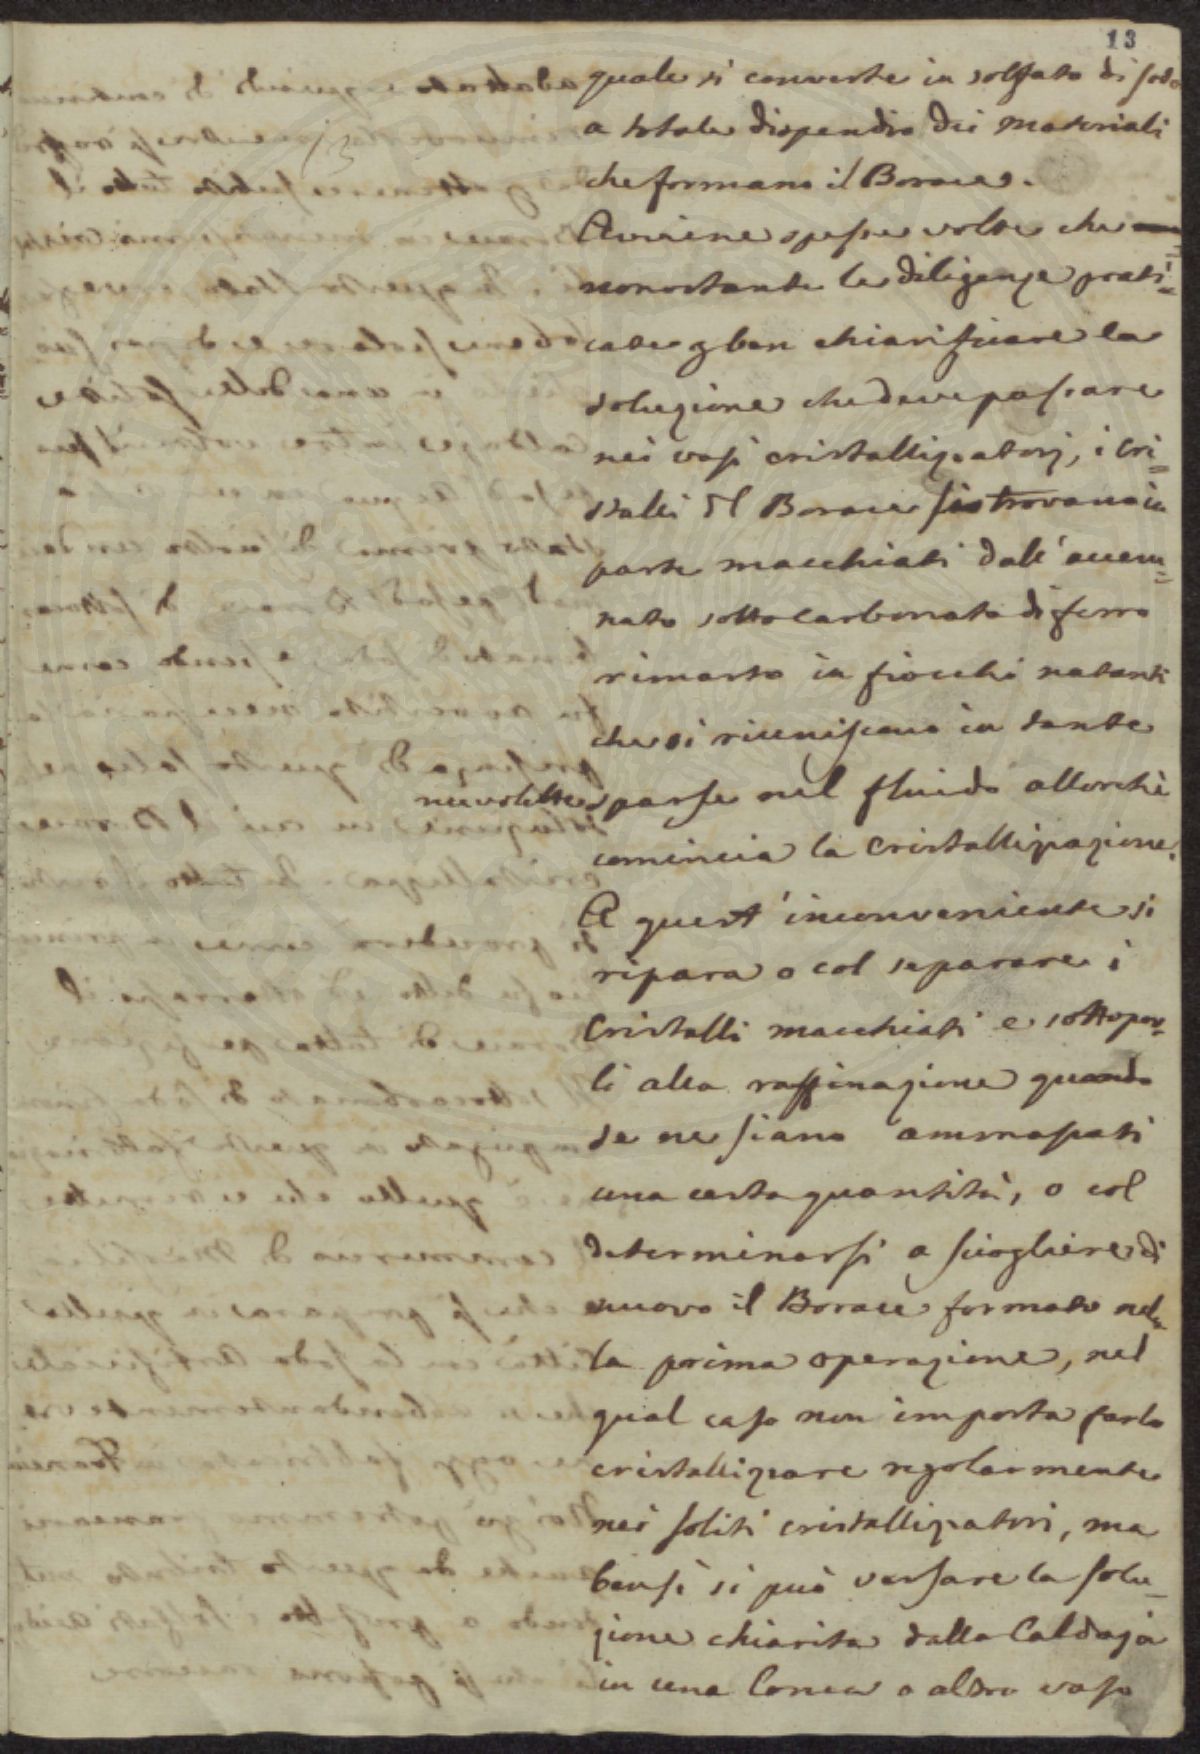 13
13
quale si converte in solfato di soda
a totale dispendio dei materiali
che formano il Borace.
Avviene spesse volte che
nonostante le diligenze prati=
cate p ben chiarificare la
soluzione che deve passare
nei vasi cristallizzatorj, i cri=
stalli del Borace si trovano in
parte macchiati dall'accen=
nato sotto carbonato di ferro
rimasto in fiocchi natanti
che si riuniscono in tante
nuvolette sparse nel fluido allorchè
comincia la cristallizzazione.
A quest'inconveniente si
ripara o col separare i
Cristalli macchiati e sottopor=
li alla raffinazione quando
se ne siano ammassati
una certa quantità, o col
determinarsi a sciogliere di
nuovo il Borace formato nel=
la prima operazione, nel
qual caso non importa farlo
cristallizzare regolarmente
nei soliti cristallizzatori, ma
bensì si può versare la solu=
zione chiarita dalla Caldaja
in una Conca o altro vaso